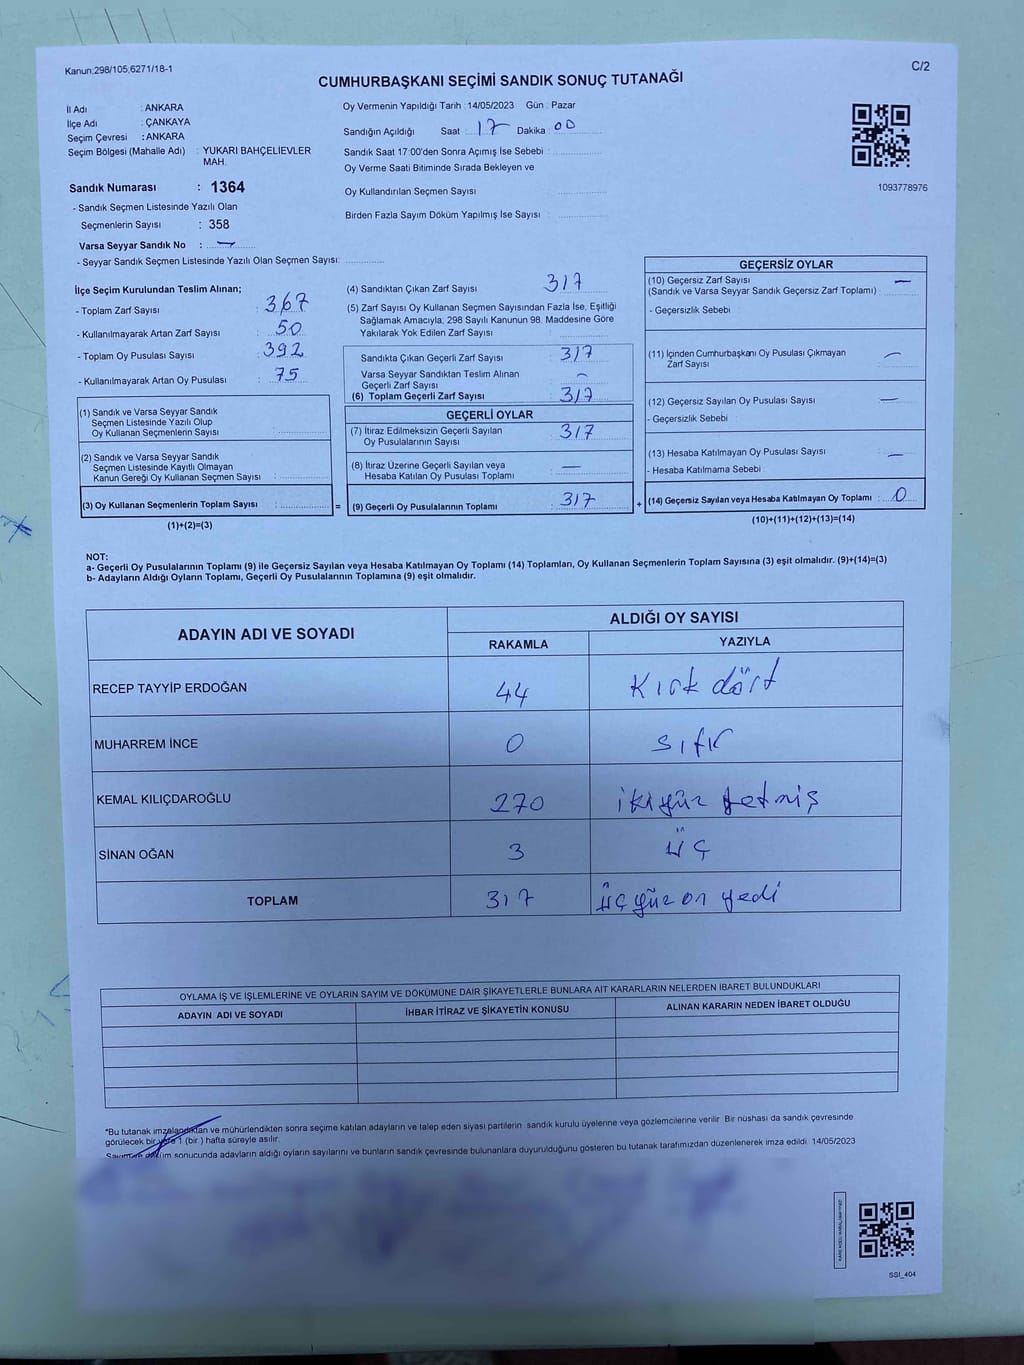 Kanun;298/105;6271/18-1
C/2
CUMHURBAŞKANI SEÇİMİ SANDIK SONUÇ TUTANAĞI
İl Adı : ANKARA
İlçe Adı : ÇANKAYA
Seçim Çevresi : ANKARA
Seçim Bölgesi (Mahalle Adı) : YUKARI BAHÇELİEVLER
MAH.
Sandık Numarası : 1364
- Sandık Seçmen Listesinde Yazılı Olan
Seçmenlerin Sayısı : 358
Varsa Seyyar Sandık No : —
- Seyyar Sandık Seçmen Listesinde Yazılı Olan Seçmen Sayısı:
Oy Vermenin Yapıldığı Tarih : 14/05/2023 Gün : Pazar
Sandığın Açıldığı Saat : 17 Dakika : 00
Sandık Saat 17:00'den Sonra Açımış İse Sebebi :
Oy Verme Saati Bitiminde Sırada Bekleyen ve
Oy Kullandırılan Seçmen Sayısı :
Birden Fazla Sayım Döküm Yapılmış İse Sayısı :
1093778976
İlçe Seçim Kurulundan Teslim Alınan;
- Toplam Zarf Sayısı : 367
- Kullanılmayarak Artan Zarf Sayısı : 50
- Toplam Oy Pusulası Sayısı : 392
- Kullanılmayarak Artan Oy Pusulası : 75
(1) Sandık ve Varsa Seyyar Sandık
Seçmen Listesinde Yazılı Olup
Oy Kullanan Seçmenlerin Sayısı :
(2) Sandık ve Varsa Seyyar Sandık
Seçmen Listesinde Kayıtlı Olmayan
Kanun Gereği Oy Kullanan Seçmen Sayısı :
(3) Oy Kullanan Seçmenlerin Toplam Sayısı :
(1)+(2)=(3)
(4) Sandıktan Çıkan Zarf Sayısı : 317
(5) Zarf Sayısı Oy Kullanan Seçmen Sayısından Fazla İse, Eşitliği
Sağlamak Amacıyla; 298 Sayılı Kanunun 98. Maddesine Göre
Yakılarak Yok Edilen Zarf Sayısı :
Sandıkta Çıkan Geçerli Zarf Sayısı : 317
Varsa Seyyar Sandıktan Teslim Alınan
Geçerli Zarf Sayısı : —
(6) Toplam Geçerli Zarf Sayısı : 317
GEÇERLİ OYLAR
(7) İtiraz Edilmeksizin Geçerli Sayılan
Oy Pusulalarının Sayısı : 317
(8) İtiraz Üzerine Geçerli Sayılan veya
Hesaba Katılan Oy Pusulası Toplamı : —
= (9) Geçerli Oy Pusulalarının Toplamı : 317
GEÇERSİZ OYLAR
(10) Geçersiz Zarf Sayısı
(Sandık ve Varsa Seyyar Sandık Geçersiz Zarf Toplamı) : —
- Geçersizlik Sebebi :
(11) İçinden Cumhurbaşkanı Oy Pusulası Çıkmayan
Zarf Sayısı : —
(12) Geçersiz Sayılan Oy Pusulası Sayısı : —
- Geçersizlik Sebebi :
(13) Hesaba Katılmayan Oy Pusulası Sayısı : —
- Hesaba Katılmama Sebebi :
+ (14) Geçersiz Sayılan veya Hesaba Katılmayan Oy Toplamı : 0
(10)+(11)+(12)+(13)=(14)
NOT:
a- Geçerli Oy Pusulalarının Toplamı (9) ile Geçersiz Sayılan veya Hesaba Katılmayan Oy Toplamı (14) Toplamları, Oy Kullanan Seçmenlerin Toplam Sayısına (3) eşit olmalıdır. (9)+(14)=(3)
b- Adayların Aldığı Oyların Toplamı, Geçerli Oy Pusulalarının Toplamına (9) eşit olmalıdır.
ADAYIN ADI VE SOYADI
ALDIĞI OY SAYISI
RAKAMLA YAZIYLA
RECEP TAYYİP ERDOĞAN 44 Kırk dört
MUHARREM İNCE 0 sıfır
KEMAL KILIÇDAROĞLU 270 ikiyüz yetmiş
SİNAN OĞAN 3 üç
TOPLAM 317 üçyüz on yedi
OYLAMA İŞ VE İŞLEMLERİNE VE OYLARIN SAYIM VE DÖKÜMÜNE DAİR ŞİKAYETLERLE BUNLARA AİT KARARLARIN NELERDEN İBARET BULUNDUKLARI
ADAYIN ADI VE SOYADI İHBAR İTİRAZ VE ŞİKAYETİN KONUSU ALINAN KARARIN NEDEN İBARET OLDUĞU
*Bu tutanak imzalandıktan ve mühürlendikten sonra seçime katılan adayların ve talep eden siyasi partilerin sandık kurulu üyelerine veya gözlemcilerine verilir. Bir nüshası da sandık çevresinde
görülecek bir yere 1 (bir ) hafta süreyle asılır.
Sayım ve döküm sonucunda adayların aldığı oyların sayılarını ve bunların sandık çevresinde bulunanlara duyurulduğunu gösteren bu tutanak tarafımızdan düzenlenerek imza edildi. 14/05/2023
SSI_404